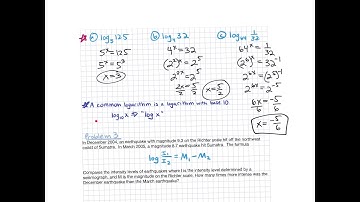 a) log₅125
5ˣ = 125
5ˣ = 5³
x = 3
b) log₄32
4ˣ = 32
(2²)ˣ = 2⁵
2²ˣ = 2⁵
2x/2 = 5/2
x = 5/2
c) log₆₄ 1/32
64ˣ = 1/32
(2⁶)ˣ = 32⁻¹
2⁶ˣ = (2⁵)⁻¹
2⁶ˣ = 2⁻⁵
6x/6 = -5/6
x = -5/6
A common logarithm is a logarithm with base 10.
log₁₀x ⇒ "log x"
Problem 3
In December 2004, an earthquake with magnitude 9.2 on the Richter scale hit off the northwest
coast of Sumatra. In March 2005, a magnitude 8.7 earthquake hit Sumatra. The formula
log I₁/I₂ = M₁ - M₂
Compare the intensity levels of earthquakes where I is the intensity level determined by a
seismograph, and M is the magnitude on the Richter scale. How many times more intense was the
December earthquake than the March earthquake?